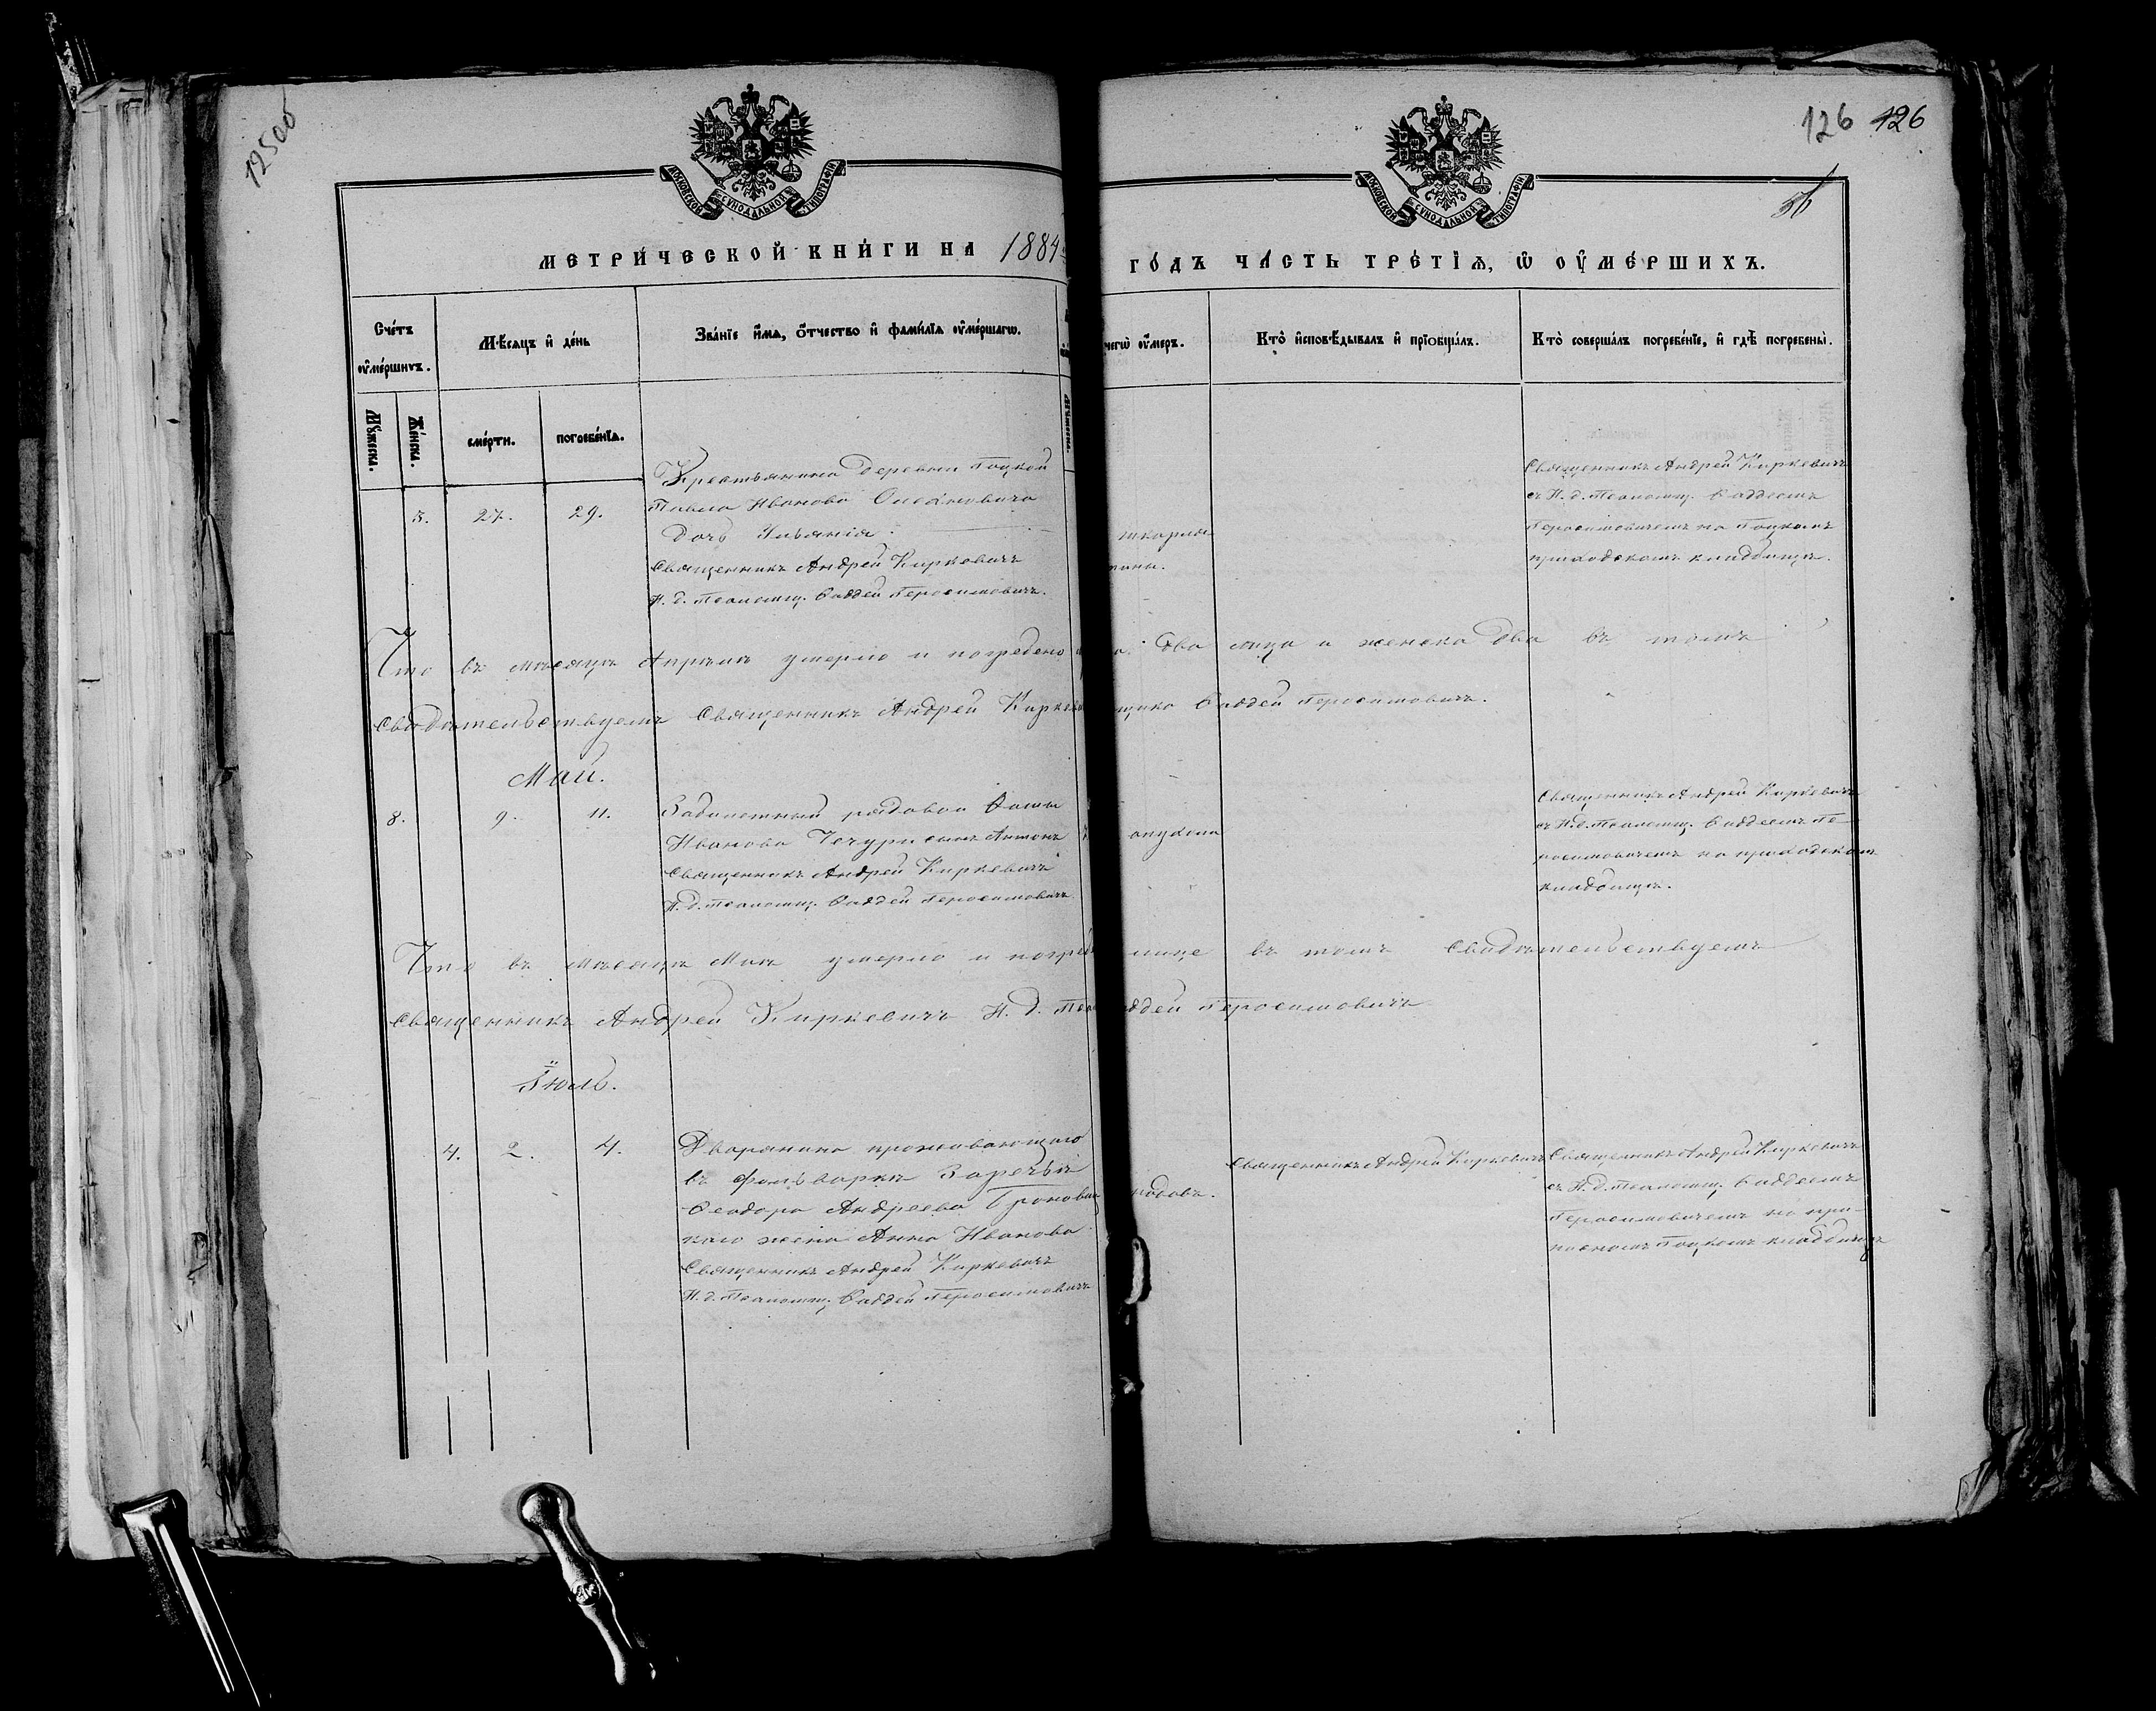 12500
126 126
56
МОСКОВСКОЙ СУНОДАЛЬНОЙ ТИПОГРАФІИ
МОСКОВСКОЙ СУНОДАЛЬНОЙ ТИПОГРАФІИ
МЕТРИ́ЧЕСКОЙ КНИ́ГИ НА 1884
ГО́ДЪ ЧА́СТЬ ТРЕ́ТІѦ, Ѡ ОУ҆МЕ́РШИХЪ.
Сче́тъ оу҆ме́ршихъ.
Мѣ́сяцъ и҆ де́нь
Зва́нїе и҆́мѧ, ѻ҆́тчество и҆ фами́лїа оу҆ме́ршагѡ.
чегѡ̀ оу҆́меръ.
Кто̀ и҆сповѣ́дывалъ и҆ прїобща́лъ.
Кто̀ соверша́лъ погребе́нїе, и҆ гдѣ̀ погребены̀.
Мꙋ́жеска.
Же́нска.
сме́рти.
погребе́нїѧ.
3. 27. 29.
Крестьянина деревни Гоцкой
Павла Иванова
дочь
Священникъ Андрей Киркевичъ
И. д. Псаломщ. Фаддей Геросимовичъ.
Священникъ Андрей Киркевичъ
съ И. д. Псаломщ. Фаддеемъ
Геросимовичемъ на Гоцкомъ
приходскомъ кладбищѣ.
Что въ мѣсяцѣ Апрѣлѣ умерло и погребено два лица и женска два въ томъ
Свидѣтельствуемъ Священникъ Андрей Кирке щика Фаддей Геросимовичъ.
Май.
8. 9. 11.
рядовой Фомы
Иванова Чечури сынъ Антонъ
Священникъ Андрей Киркевичъ
И. д. Псаломщ. Фаддей Геросимовичъ
опухоли
Священникъ Андрей Киркевичъ
съ И. д. Псаломщ. Фаддеемъ Ге-
росимовичемъ на приходскомъ
кладбищѣ.
Что въ мѣсяцѣ Маѣ умерло и погреб лице въ томъ Свидѣтельствуемъ
Священникъ Андрей Киркевичъ И. д. Пса ддей Геросимовичъ
Іюль.
4. 2. 4.
Дворянина проживающаго
въ фольваркѣ Заречьи
Феодора Андреева Броновиц
каго жена Анна Иванова
Священникъ Андрей Киркевичъ
И. д. Псаломщ. Фаддей Геросимовичъ
родовъ.
Священникъ Андрей Киркевичъ
Священникъ Андрей Киркевичъ
съ И. д. Псаломщ. Фаддеемъ
Геросимовичемъ на при-
Гоцкомъ кладбищѣ